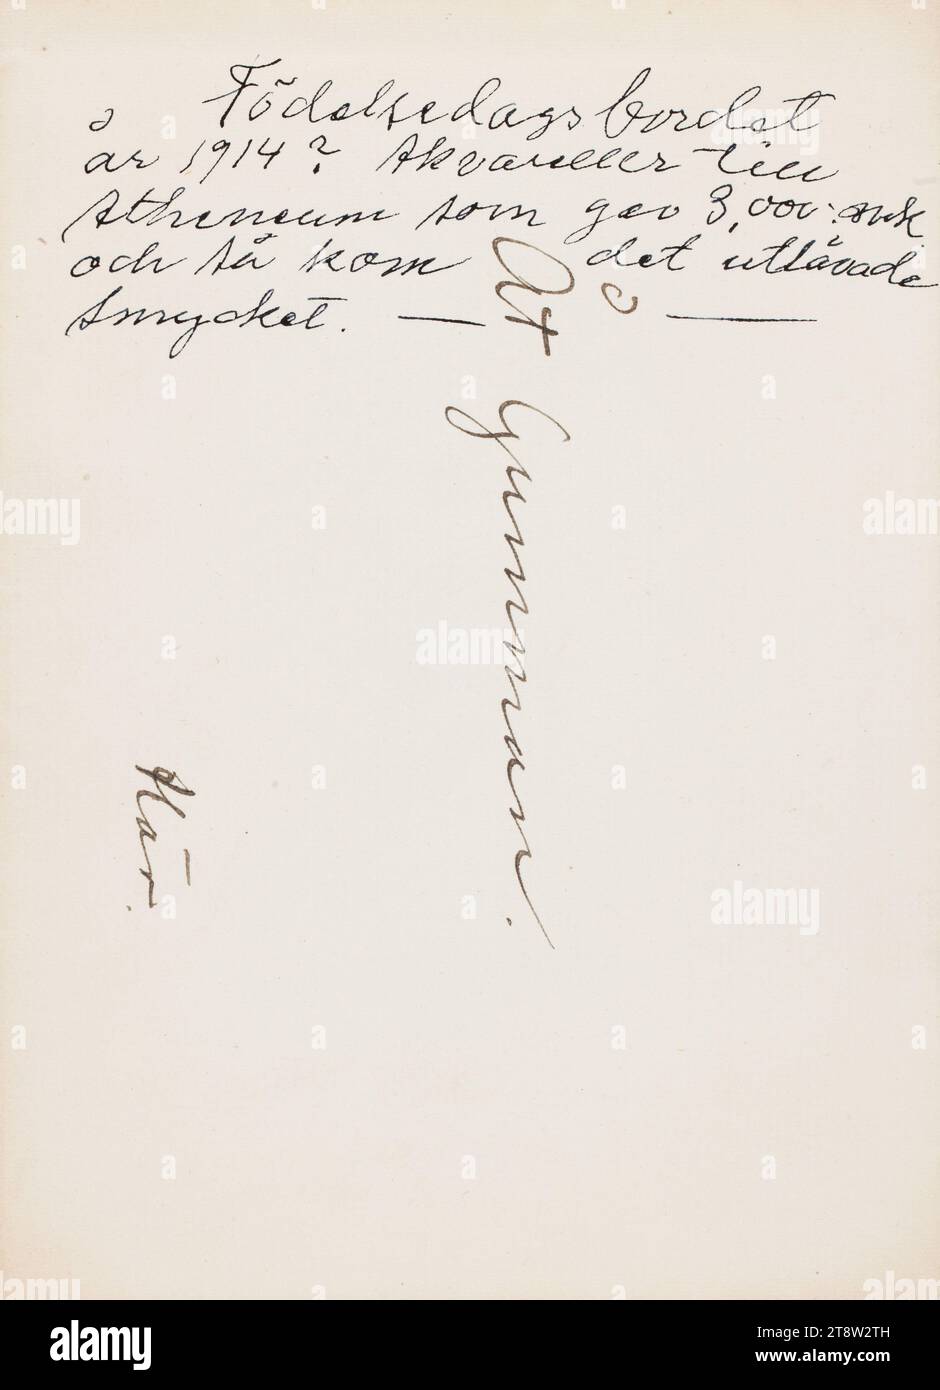 Födelsedagsbordet
år 1914? Akvareller till
Atheneum som gav 3,000:- mk
och så kom det utlåvade
smycket.
Åt Gumman.
Här.
alamy
Image ID: 2T8W2TH
www.alamy.com